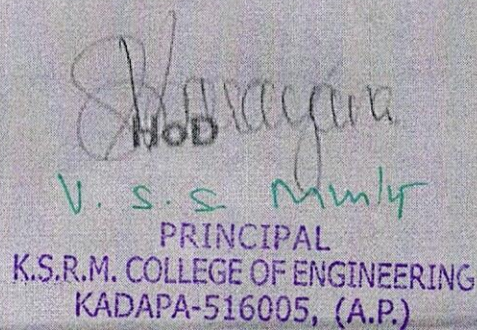 HoD
V. S. S. Murthy
PRINCIPAL
K.S.R.M. COLLEGE OF ENGINEERING
KADAPA-516005, (A.P.)